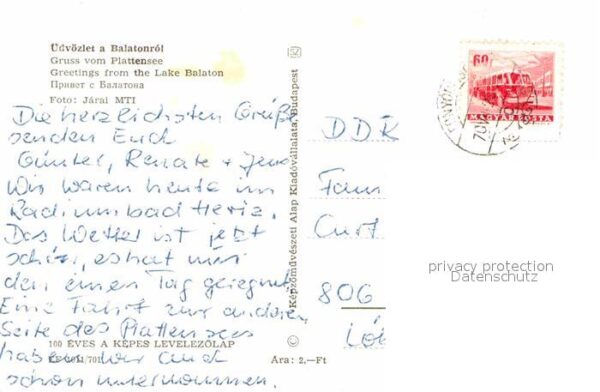 Üdvözlet a Balatonról
Gruss vom Plattensee
Greetings from the Lake Balaton
Привет с Балатона
Foto: Járai MTI
Die herzlichsten Grüße
senden Euch
Günter, Renate + Jens
Wir waren heute im
Radiumbad Heviz.
Das Wetter ist jetzt
schön, es hat mal
den einen Tag geregnet
Eine Fahrt zur anderen
Seite des Plattensees
haben wir auch
schon unternommen.
100 ÉVES A KÉPES LEVELEZŐLAP
Ára: 2,—Ft
Képzőművészeti Alap Kiadóvállalata, Budapest
60
MAGYAR POSTA
DDR
Fam
Curt
806
privacy protection
Datenschutz